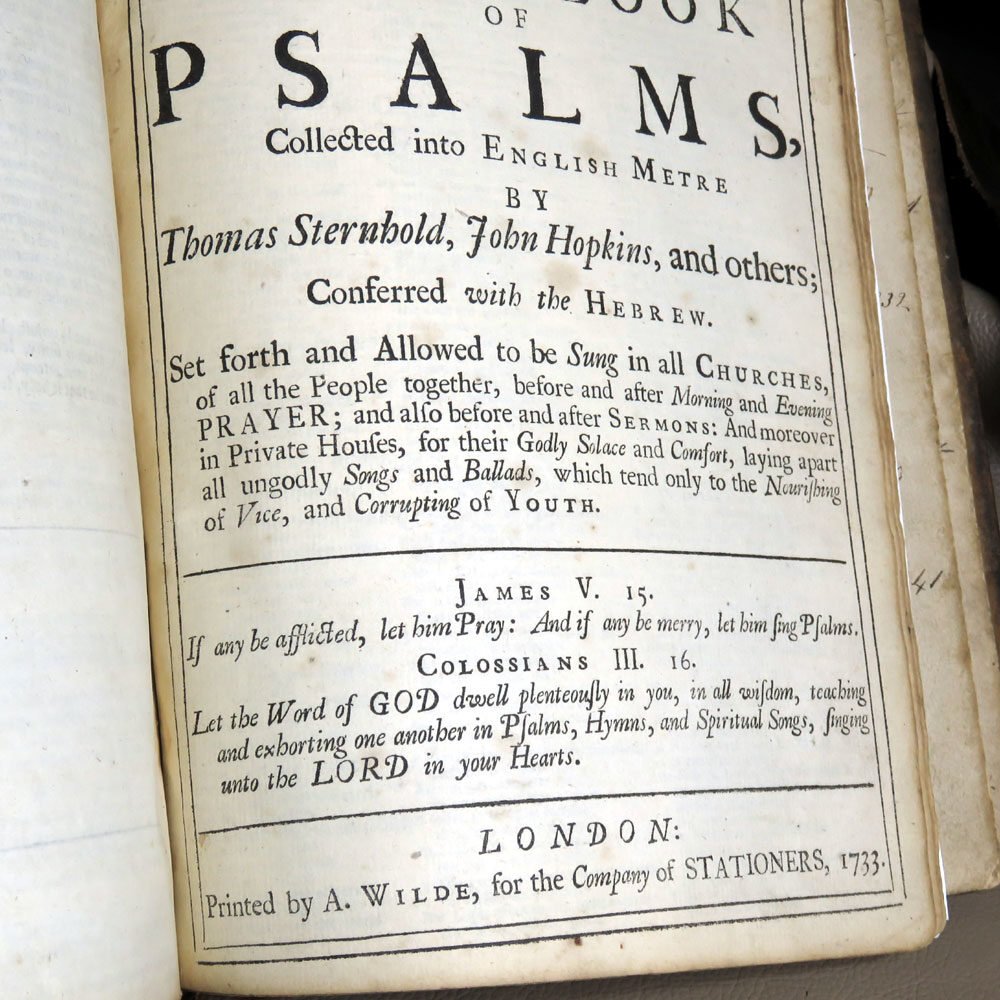 BOOK
OF
PSALMS,
Collected into ENGLISH METRE
BY
Thomas Sternhold, John Hopkins, and others;
Conferred with the HEBREW.
Set forth and Allowed to be Sung in all CHURCHES,
of all the People together, before and after Morning and Evening
PRAYER; and alſo before and after SERMONS: And moreover
in Private Houſes, for their Godly Solace and Comfort, laying apart
all ungodly Songs and Ballads, which tend only to the Nouriſhing
of Vice, and Corrupting of YOUTH.
JAMES V. 15.
If any be afflicted, let him Pray: And if any be merry, let him ſing Pſalms.
COLOSSIANS III. 16.
Let the Word of GOD dwell plenteouſly in you, in all wiſdom, teaching
and exhorting one another in Pſalms, Hymns, and Spiritual Songs, ſinging
unto the LORD in your Hearts.
LONDON:
Printed by A. WILDE, for the Company of STATIONERS, 1733.
41